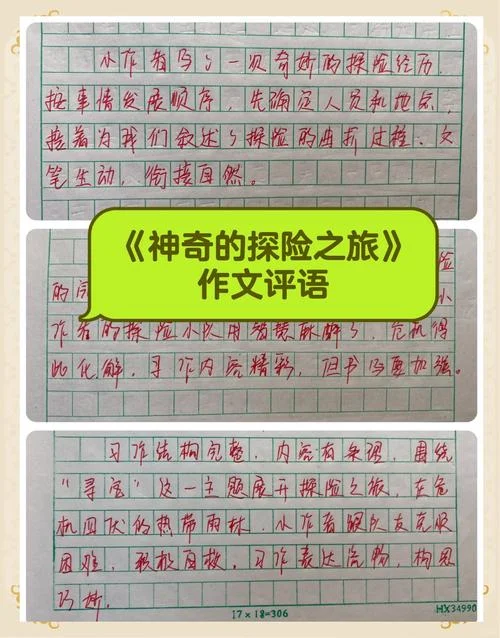 小作者写了一次奇妙的探险经历，
按事情发展顺序，先确定人员和地点，
接着为我们叙述了探险的曲折过程，文
笔生动，衔接自然。
《神奇的探险之旅》
作文评语
险
的完
小
作者的探险小队用智慧破解了，危机得
此化解，习作内容精彩，但书写要加强。
习作结构完整，内容有条理，围绕
“寻宝”这一主题展开探险之旅，在危
机四伏的热带雨林，小作者跟队友克服
困难，积极自救，习作表达流畅，构思
巧妙。
17×18=306
HX34990